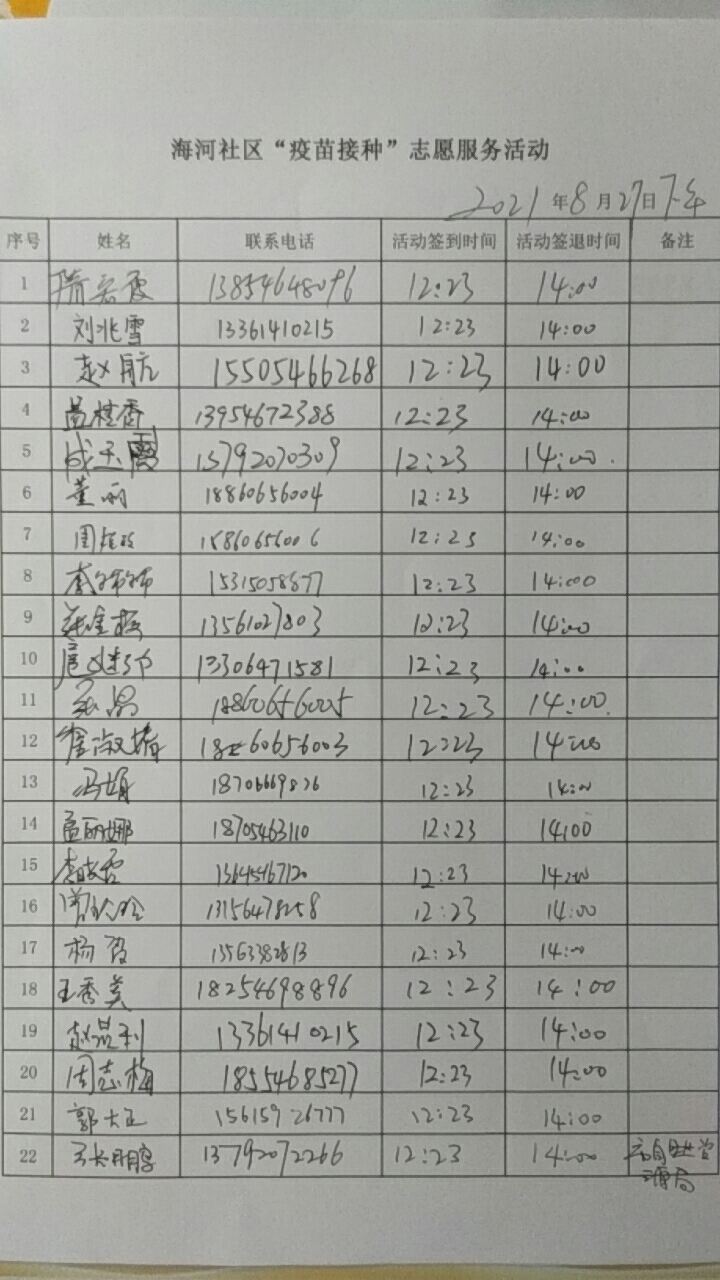 海河社区“疫苗接种”志愿服务活动
2021年8月27日下午
序号 姓名 联系电话 活动签到时间 活动签退时间 备注
1 13854648096 12:23 14:00
2 刘兆雪 13361410215 12:23 14:00
3 赵航 15505466268 12:23 14:00
4 13954672388 12:23 14:00
5 成玉霞 12:23 14:00
6 董丽 18860656004 12:23 14:00
7 12:23 14:00
8 12:23 14:00
9 13561027803 12:23 14:00
10 13306471581 12:23 14:00
11 18860656005 12:23 14:00
12 崔淑婧 12:23 14:00
13 冯娟 12:23 14:00
14 孟丽娜 18705463110 12:23 14:00
15 13645467120 12:23 14:00
16 13156478258 12:23 14:00
17 12:23 14:00
18 王秀美 18254698896 12:23 14:00
19 13361410215 12:23 14:00
20 周志梅 18554685277 12:23 14:00
21 郭大正 15615926777 12:23 14:00
22 13792072266 12:23 14:00